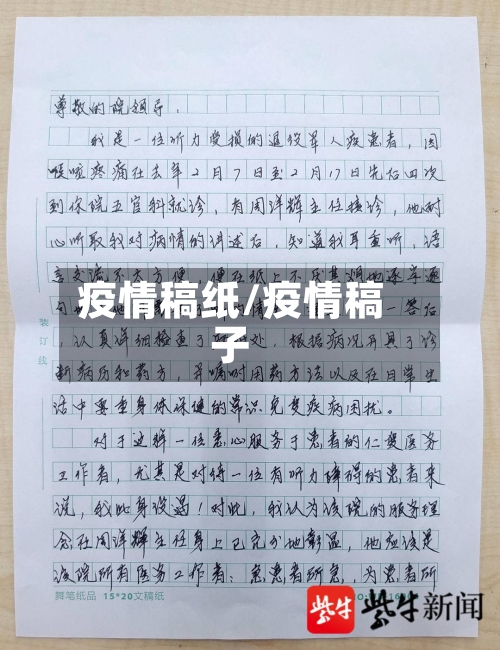 尊敬的院领导:
我是一位听力受损的退役军人疾患者,因
喉咙疼痛在去年2月7日至2月17日先后四次
到你院五官科就诊,有周洋辉主任接诊,他耐
心听取我对病情的讲述后,知道我耳重听,语
言交流不太方便,便在纸上不厌其烦地逐字逐
疫情稿纸/疫情稿
子
一答后
,认真详细检查了 处,根据病况开具了诊
断病历和药方,并嘱咐用药方法以及在日常生
活中要重身体保健的常识免受疾病困扰。
对于这样一位悉心服务于患者的仁爱医务
工作者,尤其是对待一位有听力障碍的患者来
说,我如身没遇!对此,我认为该院的服务理
念在周洋辉主任身上已充分地彰显,他应该是
该院所有医务工作者:急患者所急,为患者所
装订线
舞笔纸品 15*20文稿纸
紫牛 紫牛新闻